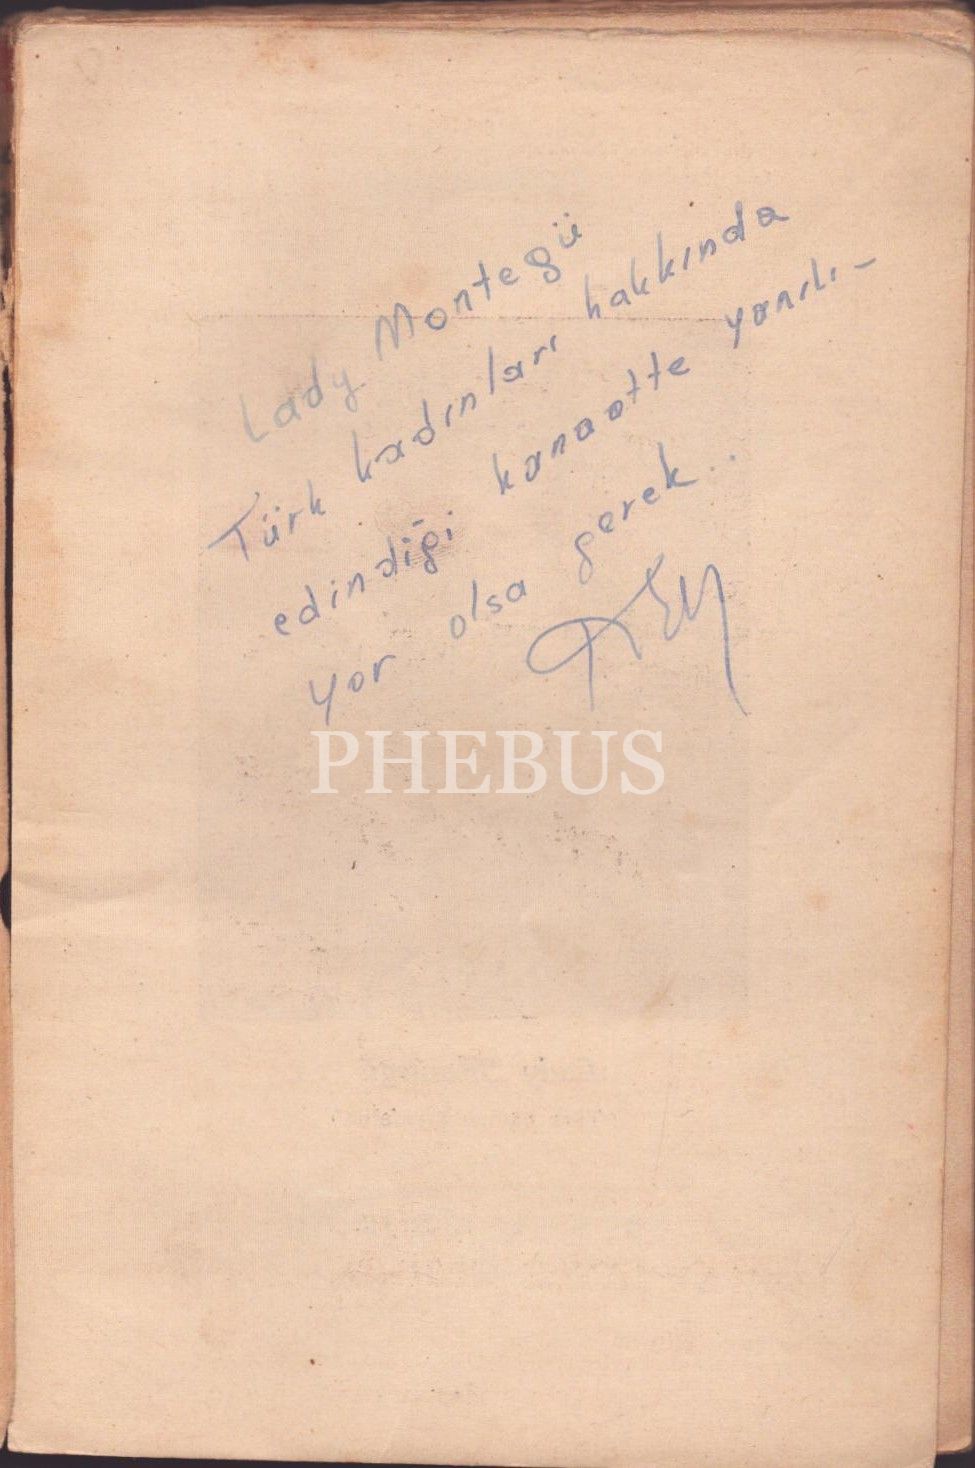 Lady Montegü
Türk kadınları hakkında
edindiği kanaatte yanılı-
yor olsa gerek..
PHEBUS